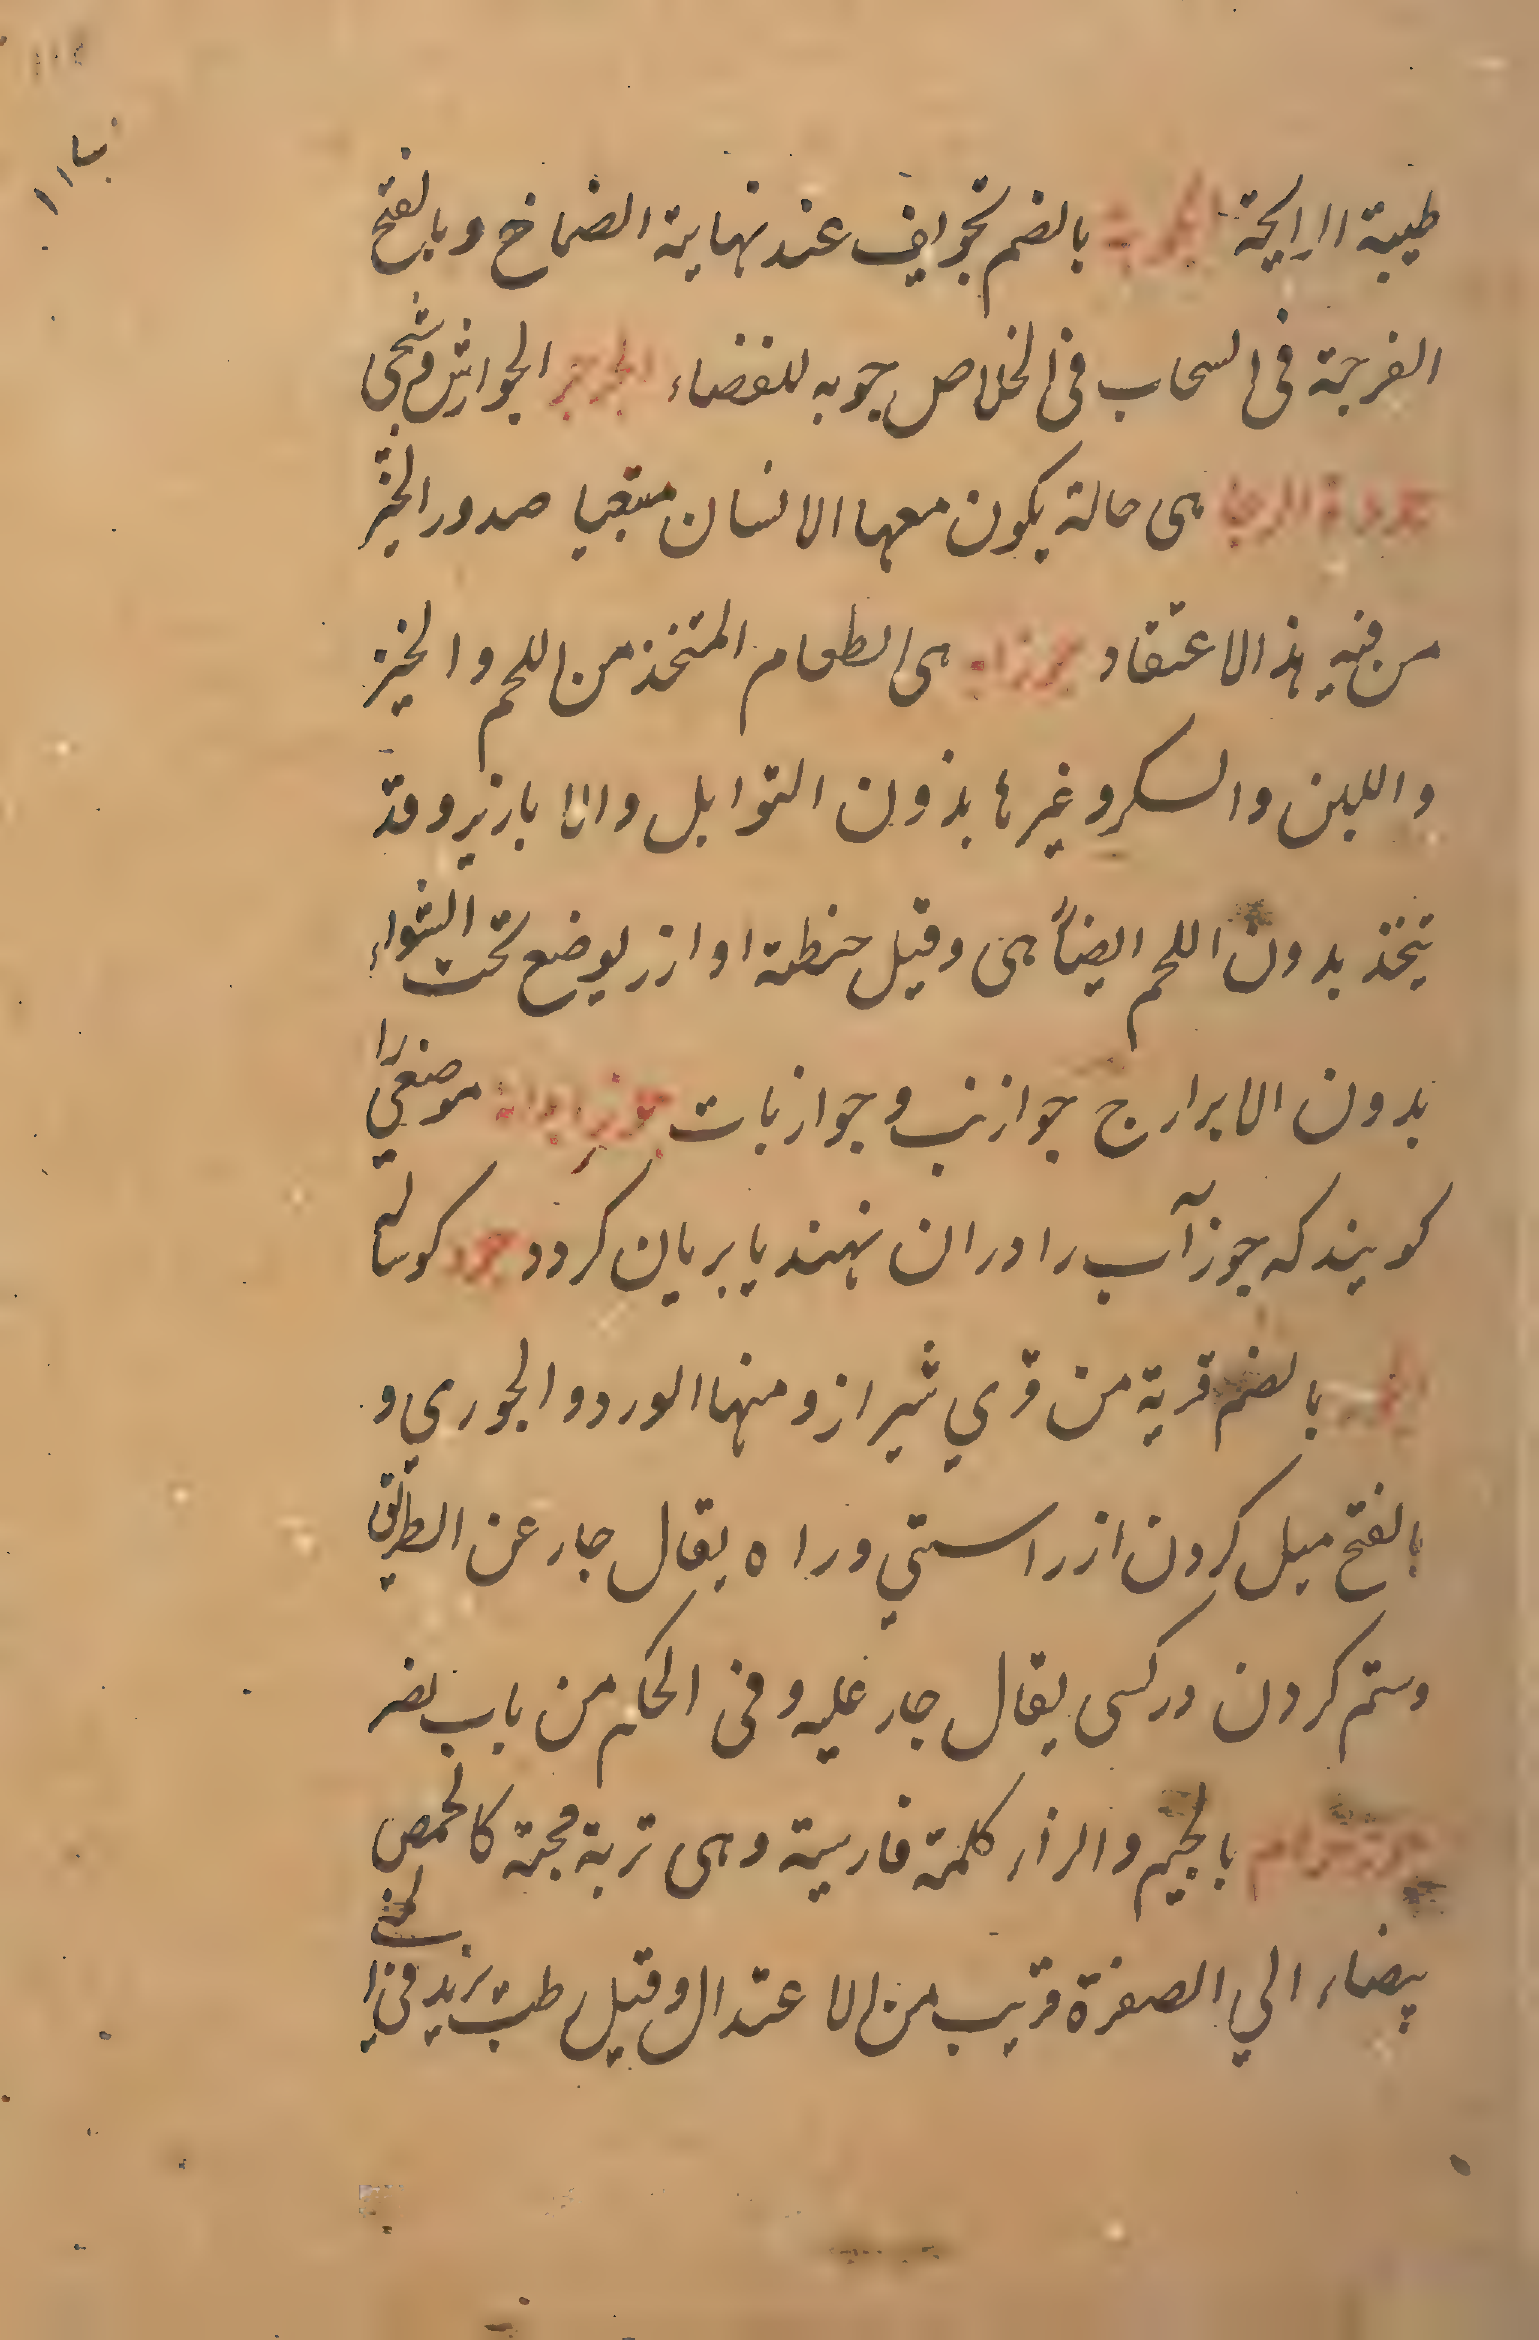 طيبة الرايحة الجوبة بالضم تجويف عند نهاية الضماخ وبالفتح
الفرجة فى السحاب فى الخلاص جوبه للفضاء الجرجر الجوارش وشحى
جودة الرجا هى حالة يكون معها الانسان متبعيا صدور الخير
من فيه هذا الاعتقاد هى الطعام المتخذ من اللحم والخبز
واللبن والسكر وغيرها بدون التوابل والابازير وقد
يتخذ بدون اللحم ايضاً هى وقيل حنطة او ارز يوضع تحت الشواء
بدون الابرار ج جوازب وجوازبات جوزابدانه موضعى را
كويند كه جوز آب را در ان نهند يا بريان كردد كوساله
بالضم قرية من قري شيراز ومنها الورد والجوري و
بالفتح ميل كردن از راستي وراه يقال جار عن الطريق
وستم كردن در كسى يقال جار عليه وفى الحكم من باب نصر
بالجيم والزاء كلمة فارسية وهى تربة محجبة كالحمص
بيضاء الي الصفرة قريب من الاعتدال وقيل رطب يزيد فى